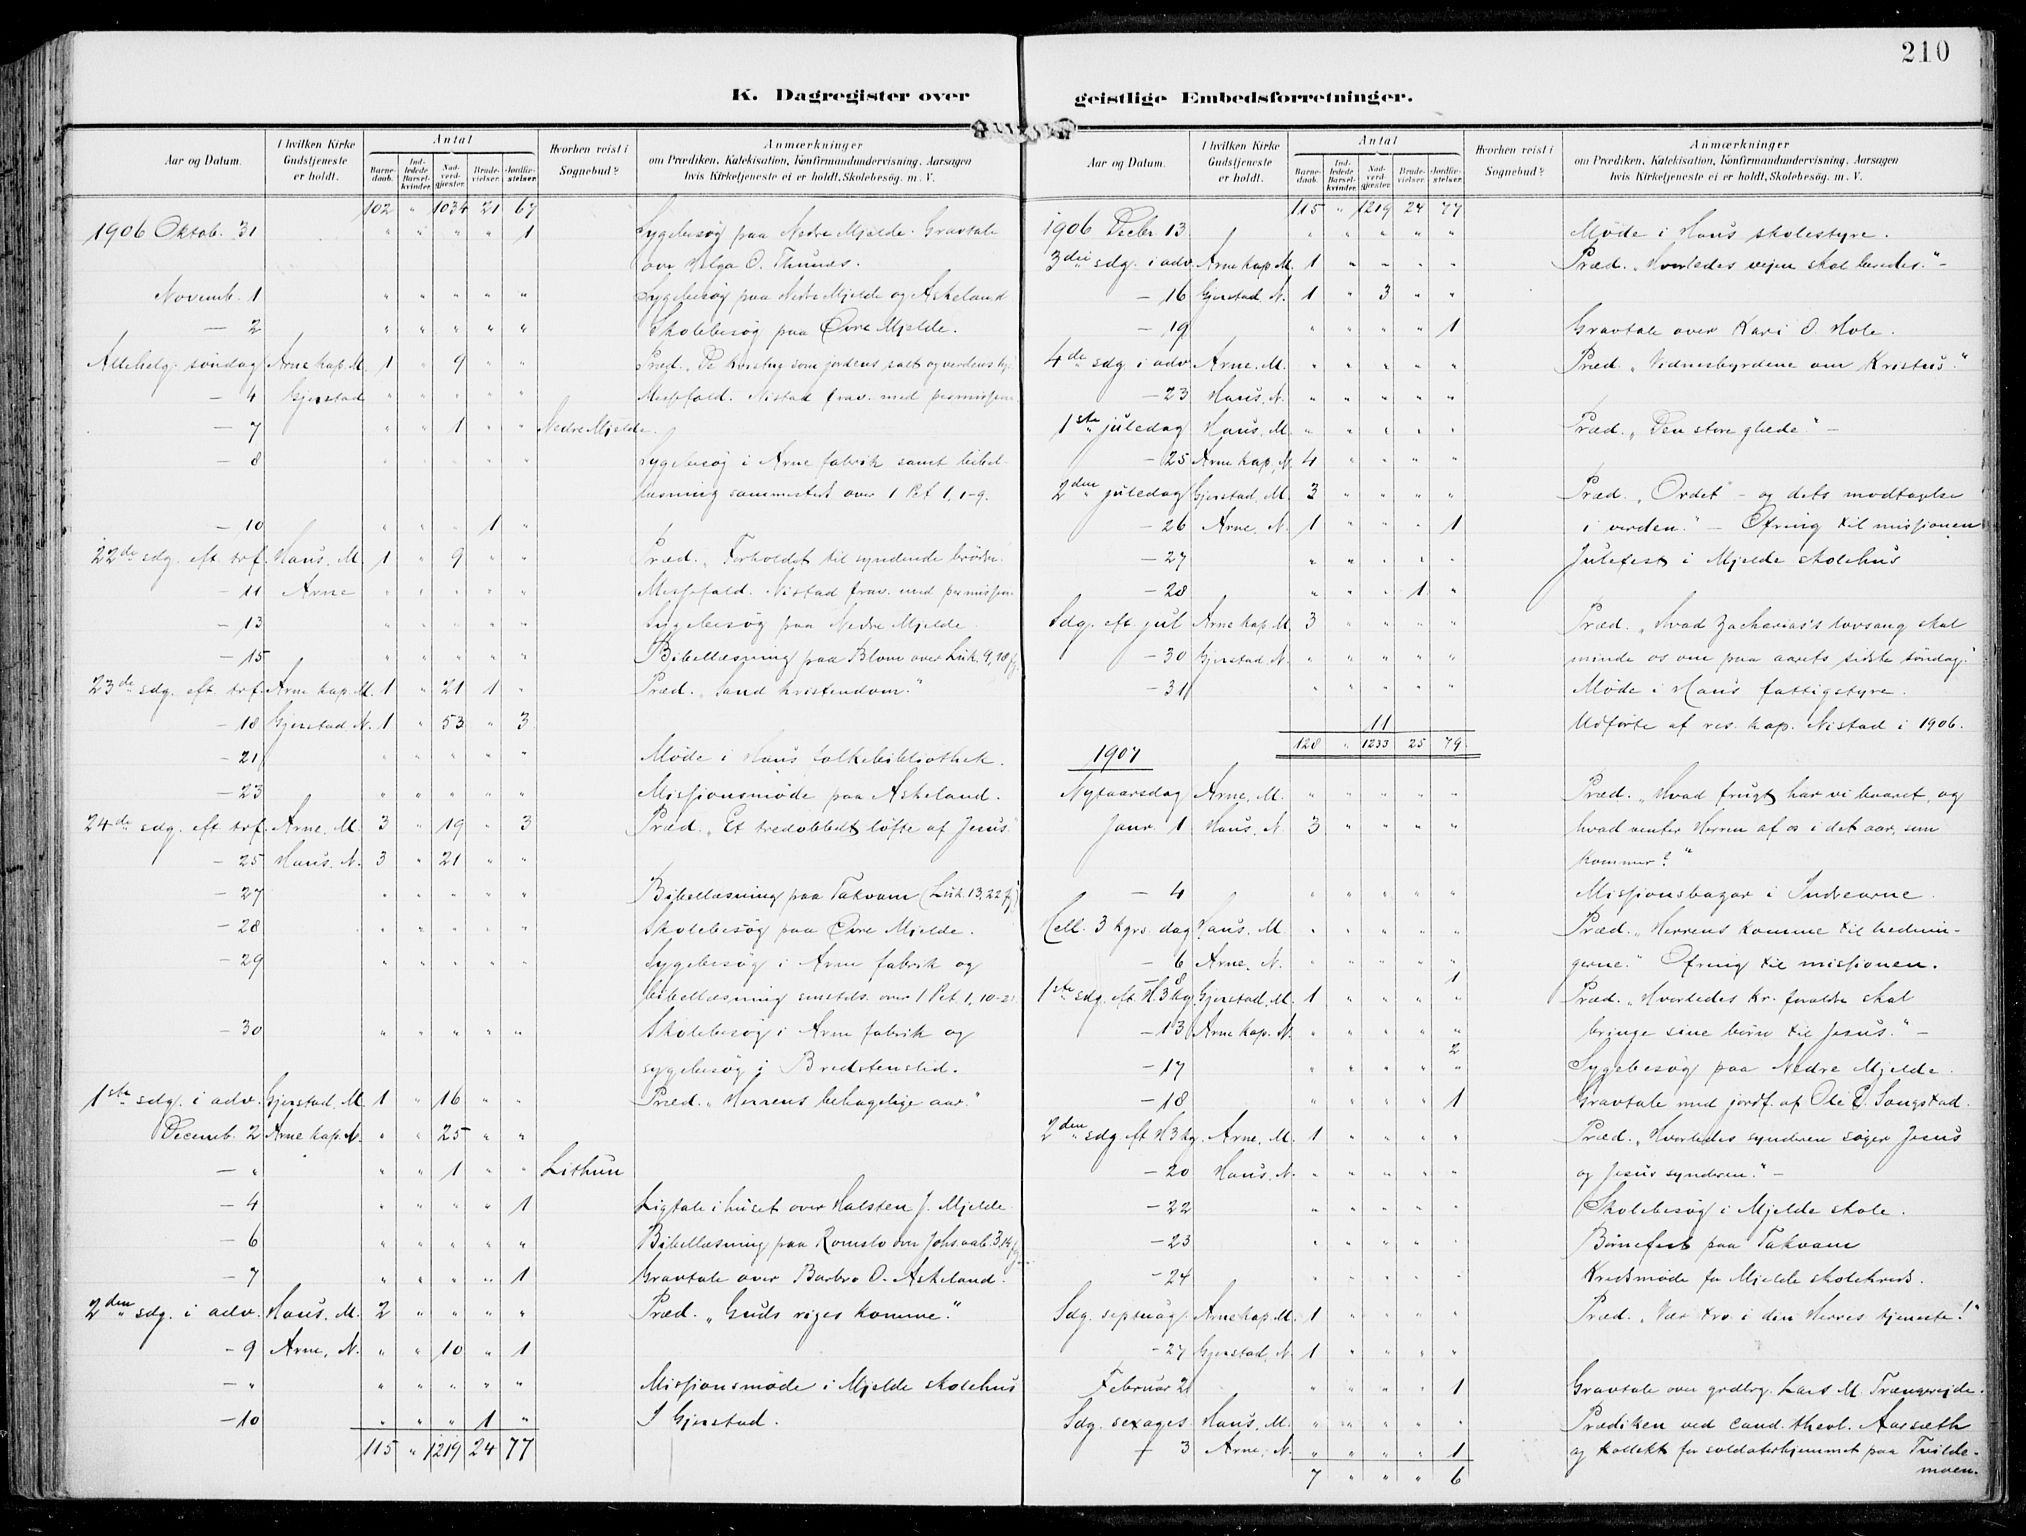 210
K. Dagregister over geistlige Embedsforretninger.
Aar og Datum. I hvilken Kirke Gudstjeneste er holdt. Antal Barnedaab. Indledede Barselkvinder. Nadverdgjester. Brudevielser. Jordfæstelser. Hvorhen reist i Sognebud? Anmærkninger om Prædiken, Katekisation, Konfirmandundervisning, Aarsagen hvis Kirketjeneste ei er holdt, Skolebesøg. m. V.
102 " 1034 21 67
1906 Oktob. 31 " " " " 1 Sygebesøg paa Nedre Mjelde. Gravtale
over Helga O. Thunes.
Novemb. 1 " " " " " Sygebesøg paa Nedre Mjelde og Askeland
— 2 " " " " " Skolebesøg paa Øvre Mjelde.
Allehelg. søndag Arne kap. M. 1 " 9 " " Præd. „De kristne som jordens salt og verdens lys
— 4 Gjerstad " " " " " Messefald. Nistad frav. med permission
— 7 " " 1 " " Nedre Mjelde.
— 8 " " " " " Sygebesøg i Arne fabrik samt bibel-
læsning sammesteds over 1 Pet 1, 1-9.
— 10 " " " 1 "
22de sdg. eft. tref. Haus, M. 1 " 9 " " Præd. „Forholdet til syndende brødre.
— 11 Arne " " " " " Messefald. Nistad frav. med permission
— 13 " " " " " Sygebesøg paa Nedre Mjelde.
— 15 " " " " " Bibellæsning paa Blom over Luk. 9, 18 fg
23de sdg. eft. tref. Arne kap. M. 1 " 21 1 " Præd. „Sand kristendom."
— 18 Gjerstad N. 1 " 53 " 3
— 21 " " " " " Møde i Haus folkebibliothek.
— 23 " " " " " Missionsmøde paa Askeland.
24de sdg. eft. tref. Arne, M. 3 " 19 " 3 Præd. „Et tredobbelt løfte af Jesus."
— 25 Haus, N. 3 " 21 " "
— 27 " " " " " Bibellæsning paa Takvam (Luk. 13, 22 fg)
— 28 " " " " " Skolebesøg paa Øvre Mjelde.
— 29 " " " " " Sygebesøg i Arne fabrik og
bibellæsning smstds. over 1 Pet. 1, 10-21
— 30 " " " " " Skolebesøg i Arne fabrik og
sygebesøg i Bredstenslid.
1ste sdg. i adv. Gjerstad, M. 1 " 16 " " Præd. „Herrens behagelige aar."
Decemb. 2 Arne kap. N. " " 25 " "
— " " " 1 " " Lithun
— 4 " " " " 1 Ligtale i huset over Halsten J. Mjelde.
— 6 " " " " " Bibellæsning paa Romslo over Johs. aab. 3, 14 fg
— 7 " " " " 1 Gravtale over Barbro O. Askeland.
2den sdg. i adv. Haus, M. 2 " " " " Præd. „Guds riges komme."
— 9 Arne, N. " " 10 " 1
— " " " " " " Missionsmøde i Mjelde skolehus
— 10 " " " 1 " I Gjerstad.
115 " 1219 24 77
Aar og Datum. I hvilken Kirke Gudstjeneste er holdt. Antal Barnedaab. Indledede Barselkvinder. Nadverdgjester. Brudevielser. Jordfæstelser. Hvorhen reist i Sognebud? Anmærkninger om Prædiken, Katekisation, Konfirmandundervisning, Aarsagen hvis Kirketjeneste ei er holdt, Skolebesøg. m. V.
115 " 1219 24 77
1906 Decbr. 13 " " " " " Møde i Haus skolestyre.
3die sdg. i adv. Arne kap. M. 1 " " " " Præd. „Hvorledes vejen skal beredes." —
— 16 Gjerstad, N. 1 " 3 " "
— 19 " " " " 1 Gravtale over Kari O. Hole.
4de sdg. i adv. Arne, M. " " " " " Præd. „Vidnesbyrdene om Kristus."
— 23 Haus, N. " " " " "
1ste juledag Haus, M. " " " " " Præd. „Den store glæde." —
— 25 Arne kap. M. 4 " " " "
2den juledag Gjerstad, M. 3 " " " " Præd. „Ordet" — og dets modtagelse
— 26 Arne, N. 1 " " " 1 i verden." — Ofring til missionen
— 27 " " " " " Julefest i Mjelde skolehus
— 28 " " " 1 "
Sdg. eft. jul Arne kap. M. 3 " " " " Præd. „Hvad Zacharias's lovsang skal
— 30 Gjerstad N. " " " " " minde os om paa aarets sidste søndag."
— 31 " " " " " Møde i Haus fattigstyre.
11 Udførte af res. kap. Nistad i 1906.
128 " 1233 25 79
1907
Nytaarsdag Arne, M. " " " " " Præd. „Hvad frugt har vi baaret, og
Janr. 1 Haus, N. 3 " " " " hvad venter Herren af os i det aar, som
kommer?"
— 4 " " " " " Missionsbazar i Indrearne.
Hell. 3 kgrs. dag Haus, M. " " " " " Præd. „Herrens komme til hednin-
— 6 Arne, N. " " " " " gerne." Ofring til missionen.
— 8 1
1ste sdg. eft. H3kg. Gjerstad, M. 1 " " " " Præd. „Hvorledes kr. forældre skal
— 13 Arne kap. N. " " " " " bringe sine børn til Jesus." —
2
— 17 " " " " " Sygebesøg paa Nedre Mjelde.
— 18 " " " " 1 Gravtale med jordf. af Ole E. Songstad.
2den sdg. eft. H3kg. Arne, M. 1 " " " " Præd. „Hvorledes synderen søger Jesus
— 20 Haus, N. " " " " " og Jesus synderen." —
— 22 " " " " " Skolebesøg i Mjelde skole.
— 23 " " " " " Børnefest paa Takvam
— 24 " " " " " Kredsmøde for Mjelde skolekreds.
Sdg. septuag. Arne kap. M. 1 " " " " Præd. „Vær tro i din Herres tjeneste!"
— 27 Gjerstad, N. 1 " " " "
Februar 2 " " " " 1 Gravtale over grdbrg. Lars M. Trængereide.
Sdg. sexages. Haus, M. " " " " " Prædiken ved cand. theol. Aarsæth
— 3 Arne, N. " " " " 1 og kollekt for soldaterhjemmet paa Tvilde-
moen.
7 " " " 6